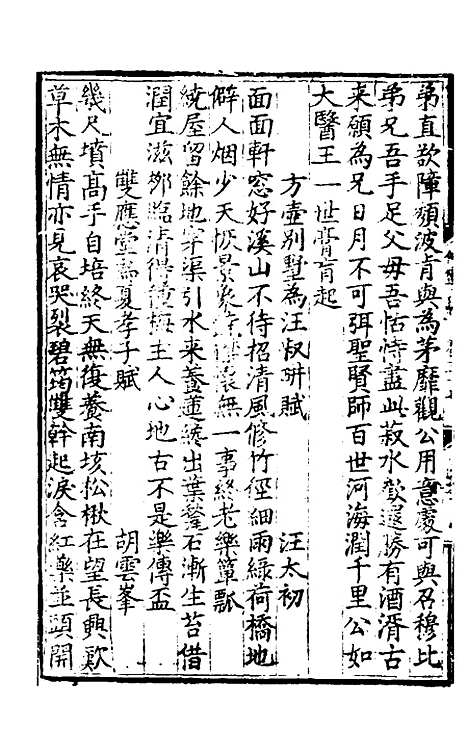 弟直欲障頹波肯與為茅靡觀公用意處可與召穆比
弟兄吾手足父母吾怙恃盡此菽水歡還勝有酒湑古
来願為兄日月不可弭聖賢師百世河海潤千里公如
大醫王一世膏肓起
方壺別墅為汪叔畊賦 汪太初
面面軒窓好溪山不待招清風修竹徑細雨綠荷橋地
僻人烟少天悭景無一事終老樂簞瓢
繞屋留餘地穿渠引水来養蓮終出葉鑿石漸生苔借
潤宜滋臨清得主人心地古不是樂傳盃
雙應堂為夏孝子賦 胡雲峯
幾尺墳髙手自培終天無復養南垓松楸在望長興歎
草木無情亦見哀哭裂碧筠雙幹起淚含紅藥並頭開